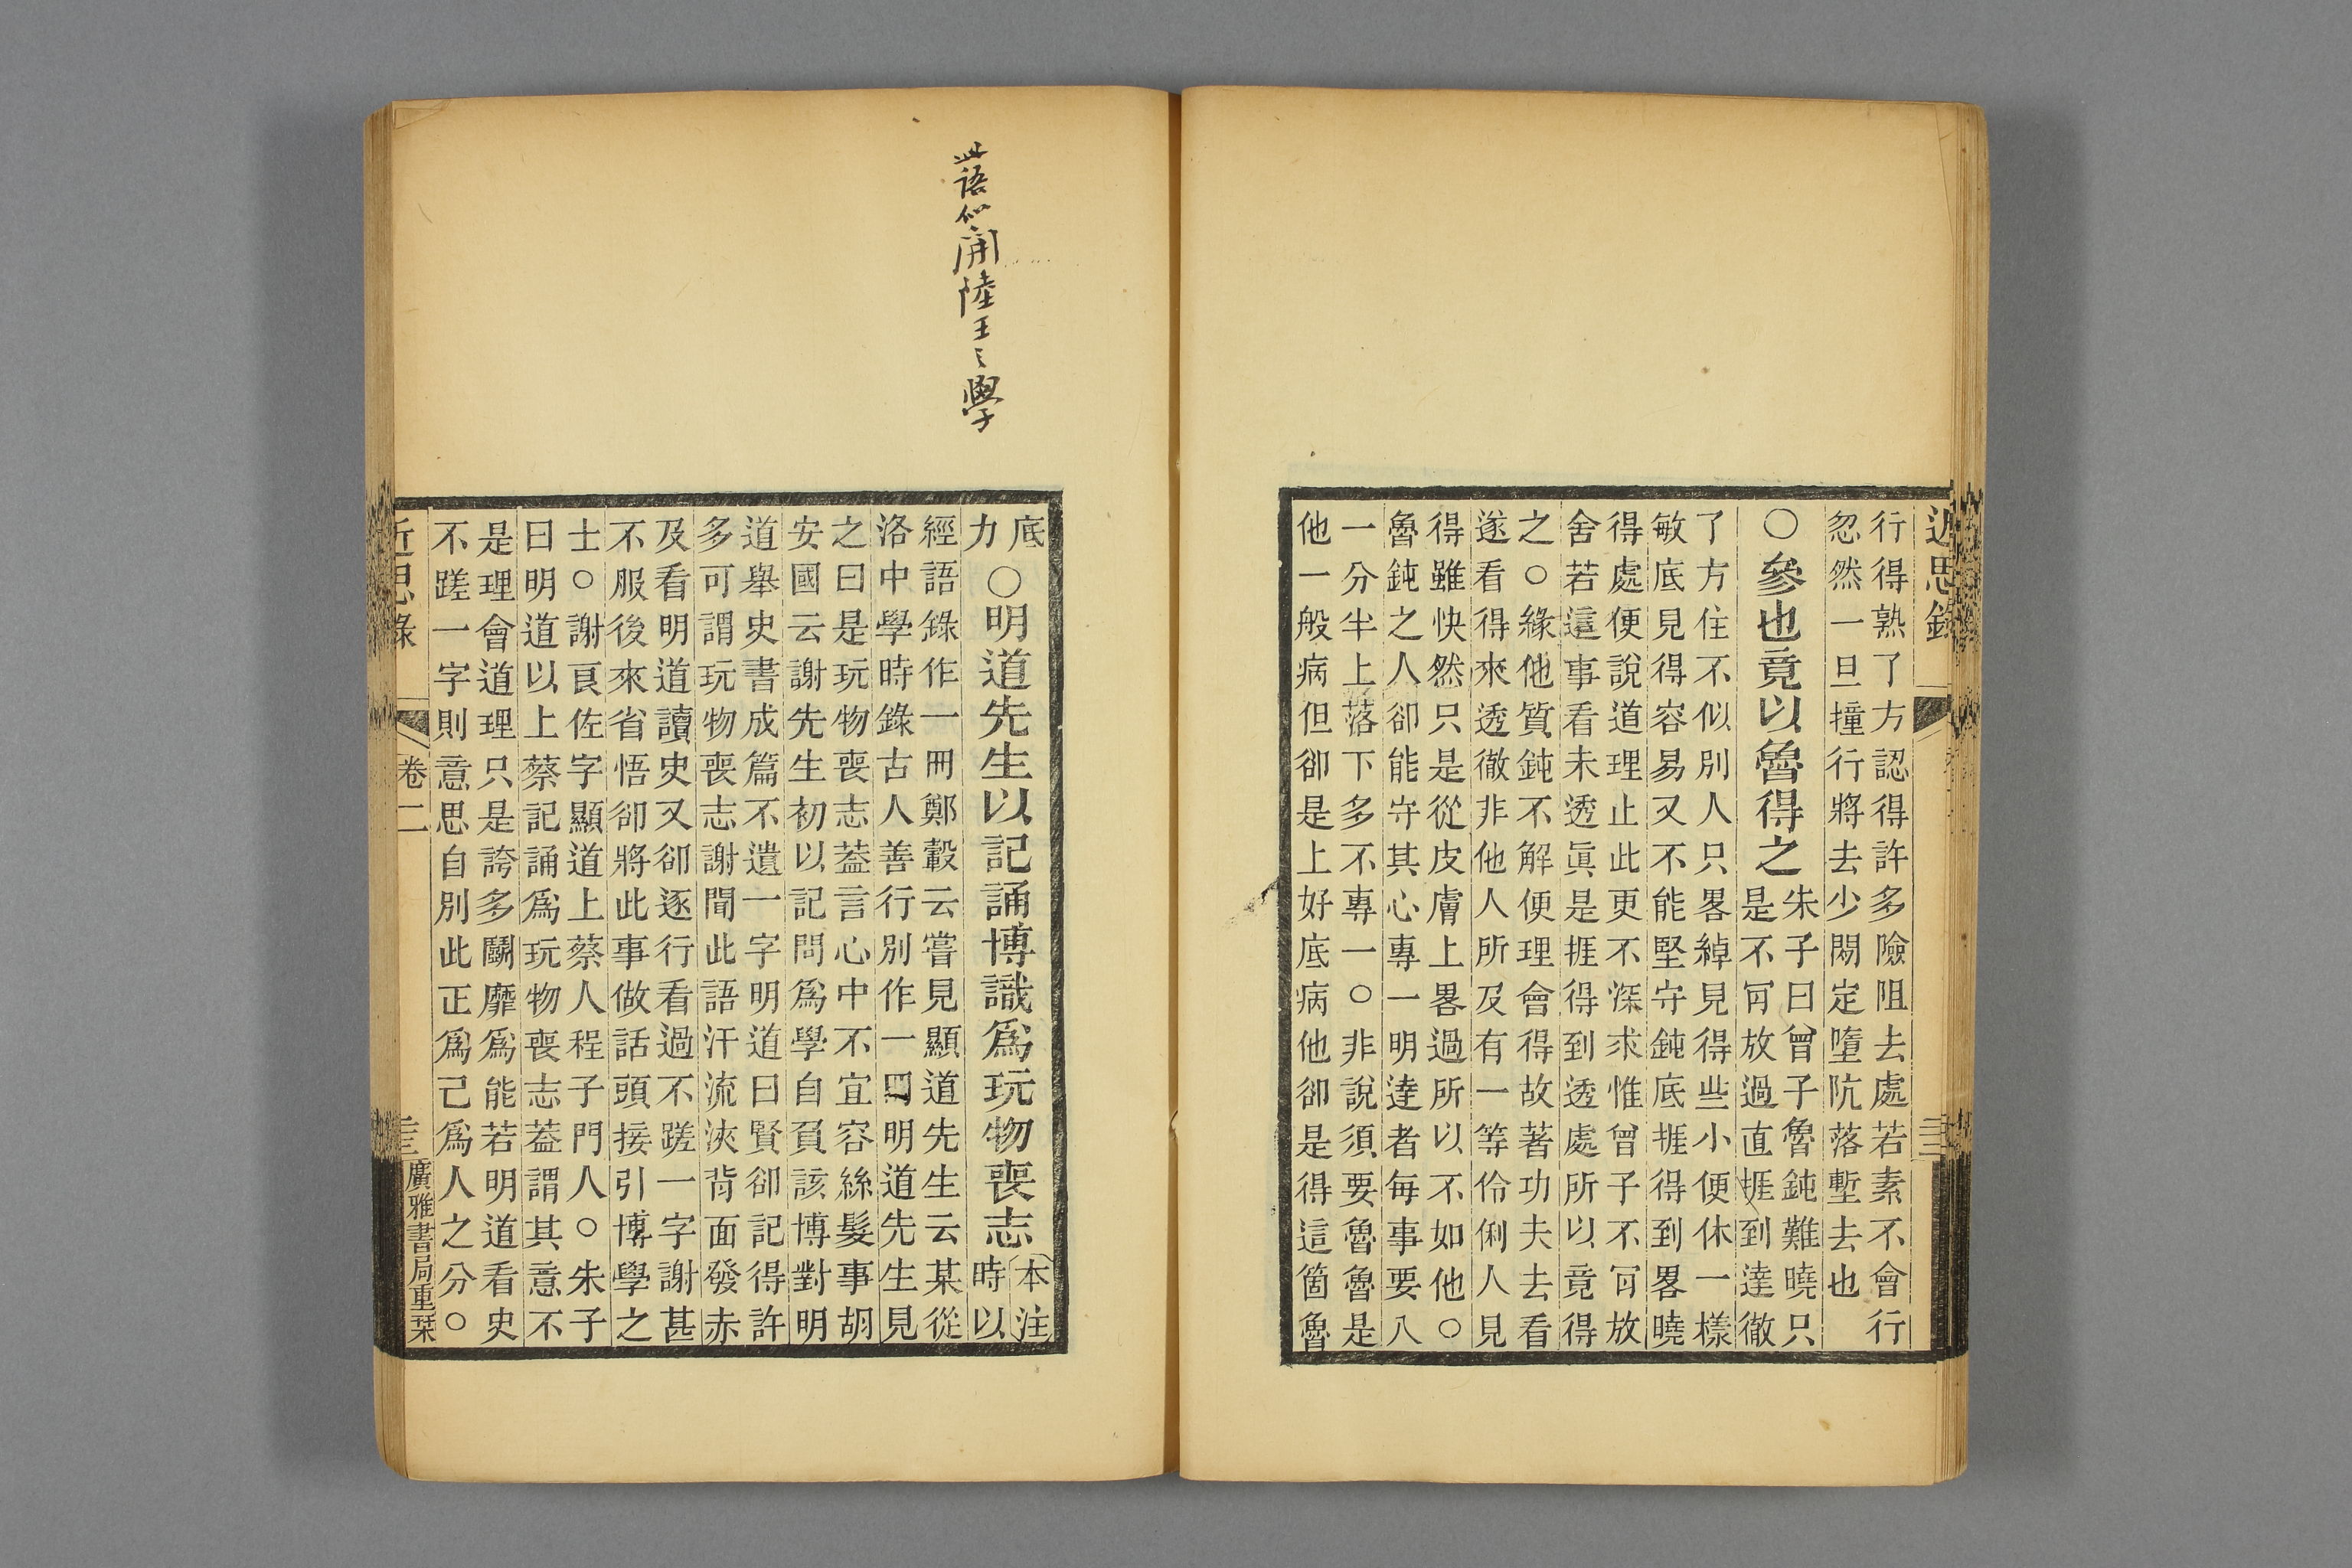 近思錄
行得熟了方認得許多險阻去處若素不會行
忽然一旦撞行將去少閒定墮阬落塹去也
○參也竟以魯得之
朱子曰曾子魯鈍難曉只
是不肎放過直捱到達徹
了方住不似別人只畧綽見得些小便休一樣
敏底見得容易又不能堅守鈍底捱得到畧曉
得處便說道理止此更不深求惟曾子不肎放
舍若這事看未透眞是捱得到透處所以竟得
之○緣他質鈍不解便理會得故著功夫去看
遂看得來透徹非他人所及有一等伶俐人見
得雖快然只是從皮膚上畧過所以不如他○
魯鈍之人卻能守其心專一明達者每事要八
一分半上落下多不專一○非說須要魯魯是
他一般病但卻是上好底病他卻是得這箇魯
此语似開陸王之學
底
力
○明道先生以記誦博識爲玩物喪志
本注
時以
經語錄作一冊鄭轂云嘗見顯道先生云某從
洛中學時錄古人善行別作一冊明道先生見
之曰是玩物喪志蓋言心中不宜容絲髮事胡
安國云謝先生初以記問爲學自負該博對明
道舉史書成篇不遺一字明道曰賢卻記得許
多可謂玩物喪志謝聞此語汗流浹背面發赤
及看明道讀史又卻逐行看過不蹉一字謝甚
不服後來省悟卻將此事做話頭接引博學之
士○謝良佐字顯道上蔡人程子門人○朱子
曰明道以上蔡記誦爲玩物喪志蓋謂其意不
是理會道理只是誇多鬬靡爲能若明道看史
不蹉一字則意思自別此正爲己爲人之分○
近思錄
卷二
廣雅書局重栞